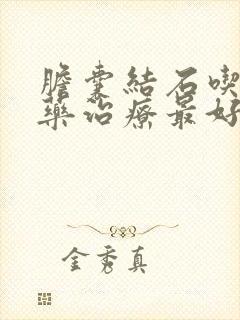 膽囊結石喫
藥治療最好
金秀真